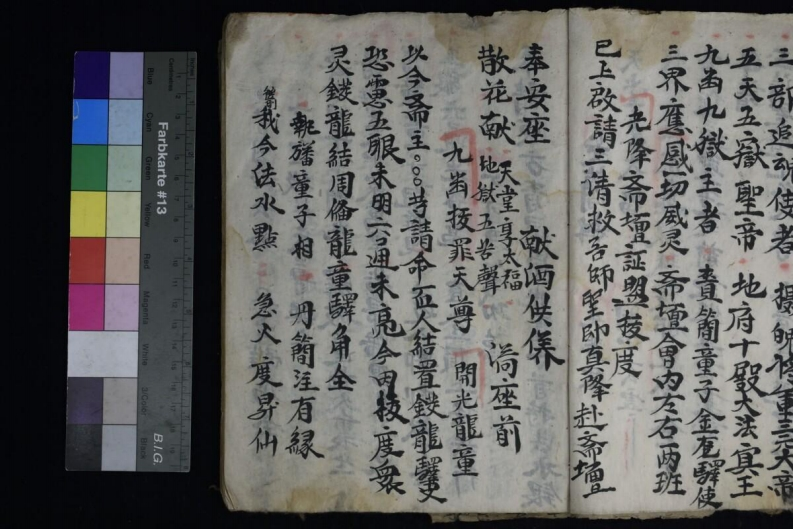 三部追魂使者
五天五嶽聖帝 地府十殿大法冥王
九幽九獄主者 賫簡童子金龍驛使
三界應感一切威灵 斋壇會内左右两班
光降斋壇証盟拔度
已上啟請三清救苦師聖帥真降赴斋壇
奉安座 献酒供養
散花献 天堂享太福 地獄五苦聲 满座前
九幽拔罪天尊 開光龍童
以今斋主。○○等請命匠人結置鉄龍驛吏
恐慮五眼未明六通未亮今由拔度衆
灵鉄龍結周俻龍童驛角全
執旛童子相 丹簡注有緣
我今法水點 急火度昇仙
Farbkarte #13
B.I.G.
Centimetres
Inches
Blue
Cyan
Green
Yellow
Red
Magenta
White
3/Color
Black